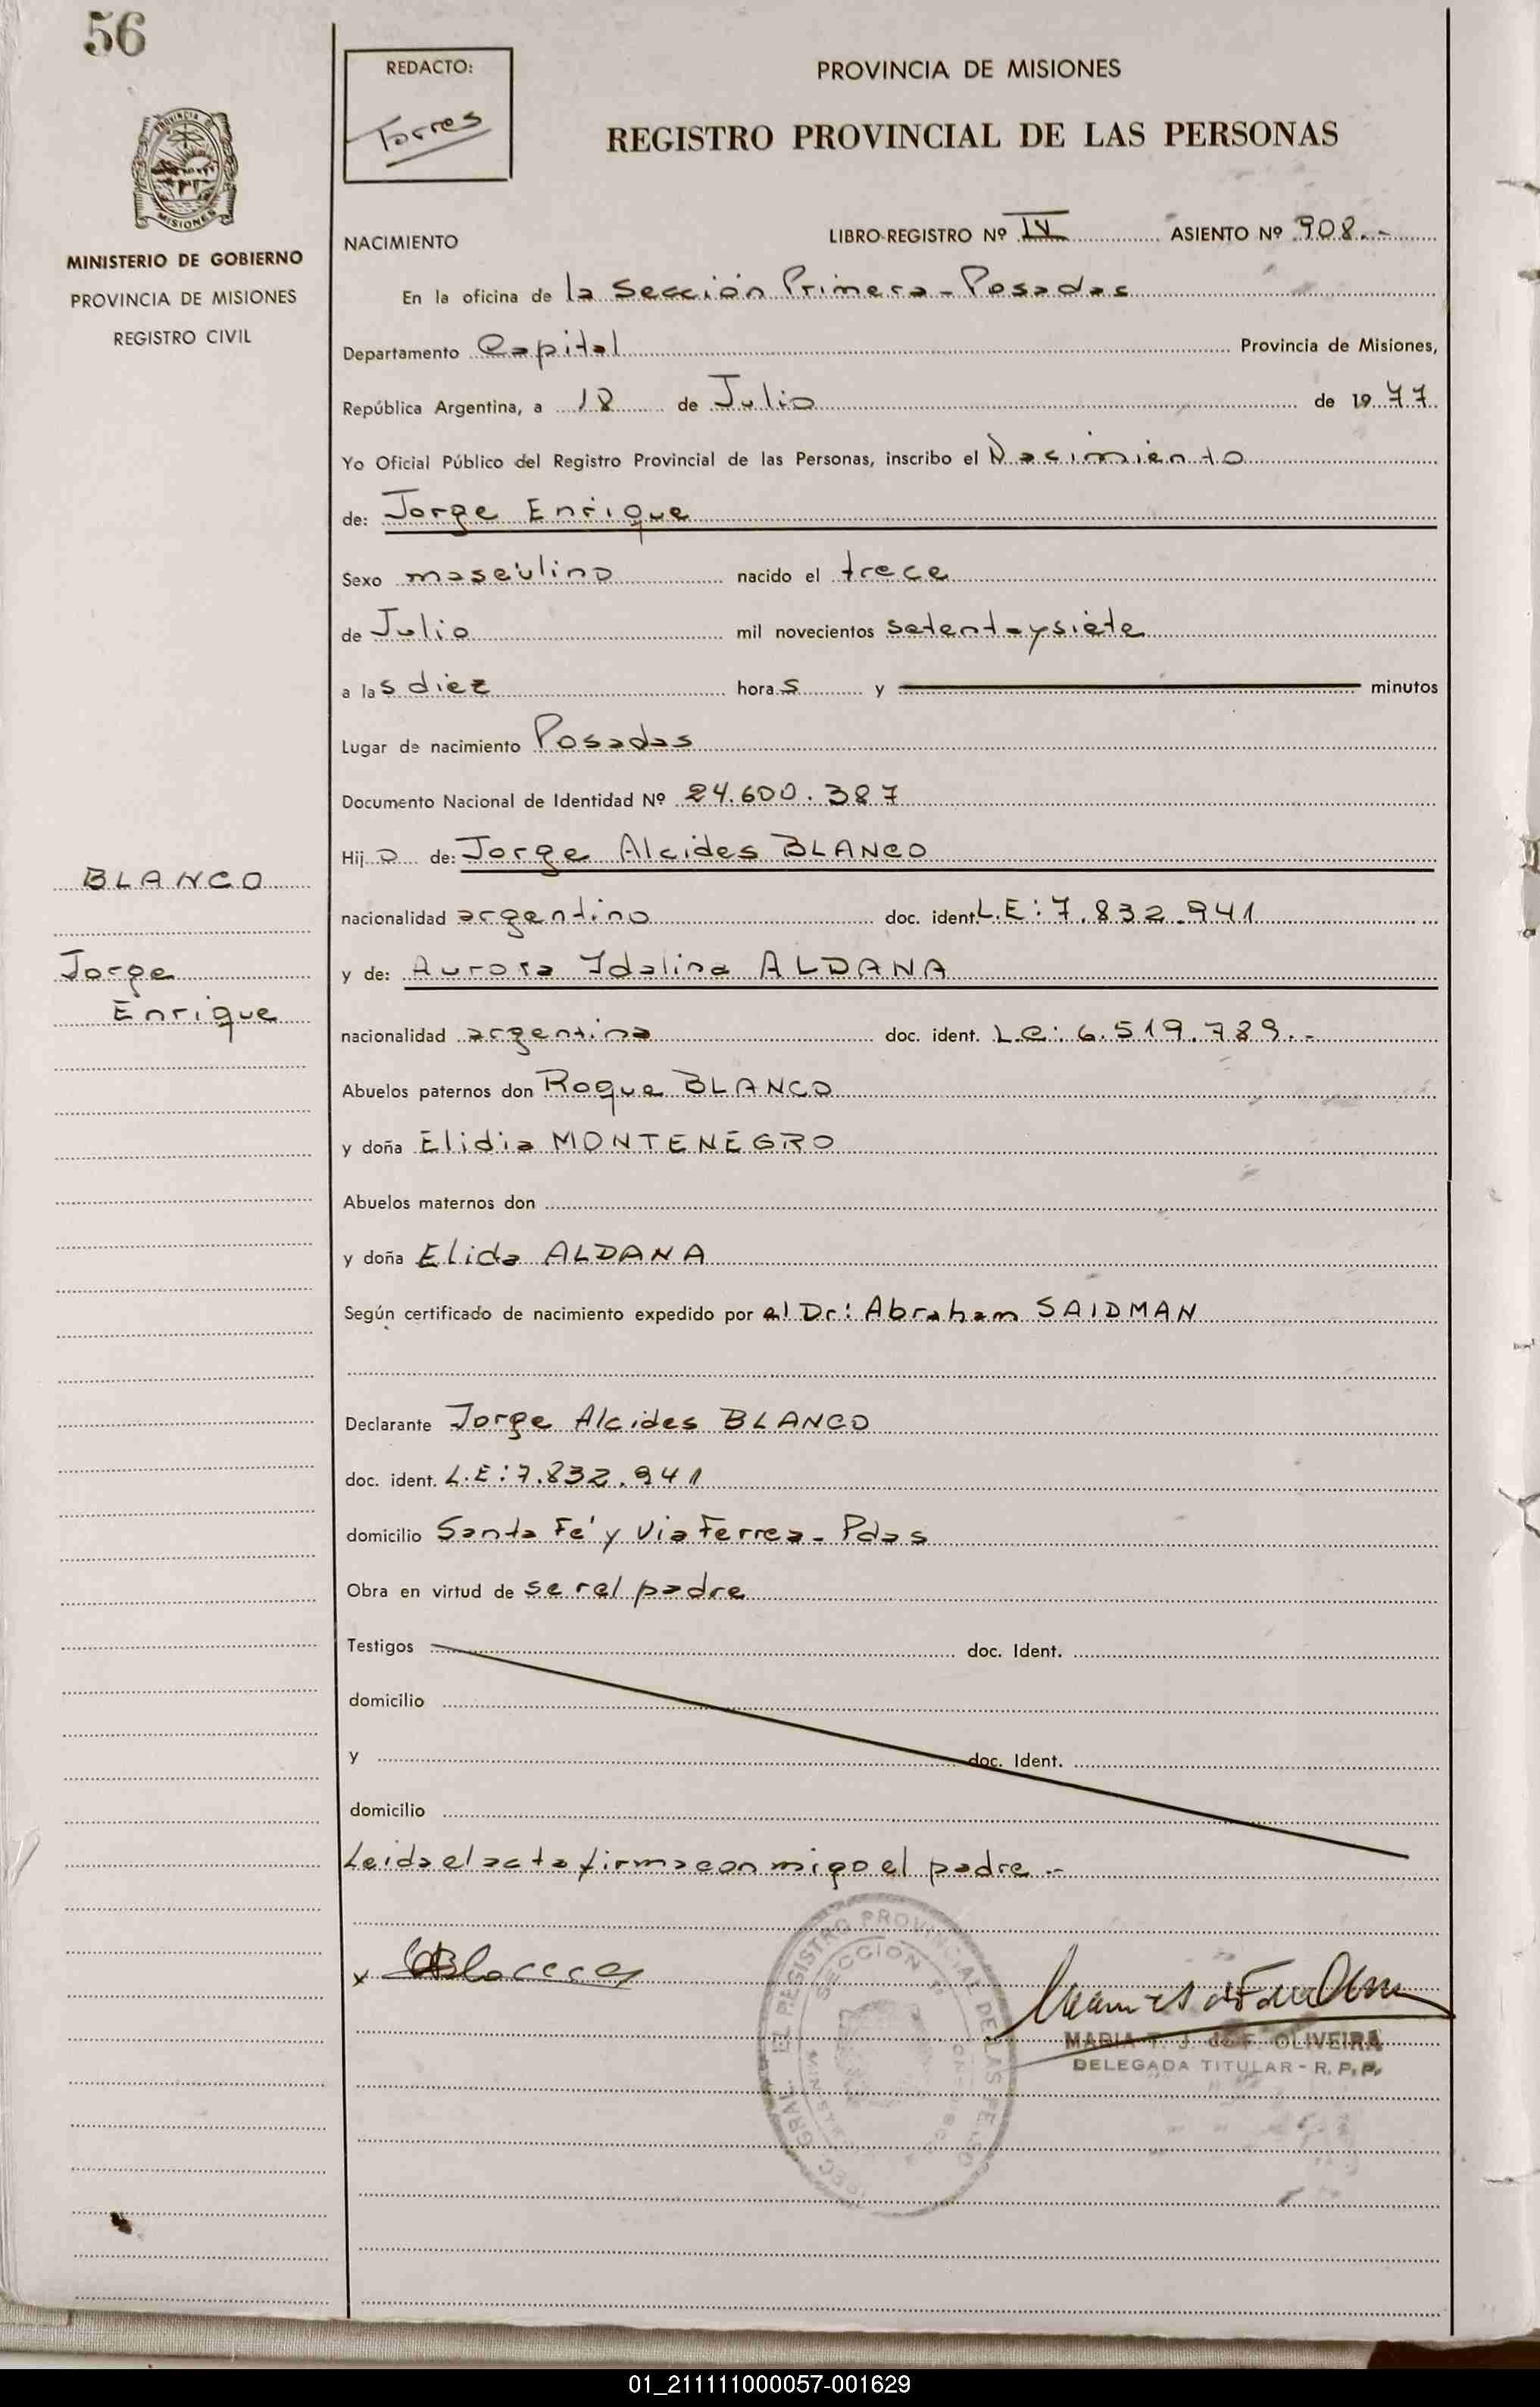 56
REDACTO:
Torres
PROVINCIA DE MISIONES
REGISTRO PROVINCIAL DE LAS PERSONAS
PROVINCIA DE
MISIONES
MINISTERIO DE GOBIERNO
PROVINCIA DE MISIONES
REGISTRO CIVIL
NACIMIENTO
LIBRO-REGISTRO Nº IV ASIENTO Nº 908.-
En la oficina de la Sección Primera - Posadas
Departamento Capital Provincia de Misiones,
República Argentina, a 18 de Julio de 1977
Yo Oficial Público del Registro Provincial de las Personas, inscribo el Nacimiento
de: Jorge Enrique
Sexo masculino nacido el trece
de Julio mil novecientos setentaysiete
a las diez horas y minutos
Lugar de nacimiento Posadas
Documento Nacional de Identidad Nº 24.600.387
Hijo de: Jorge Alcides BLANCO
BLANCO
nacionalidad argentino doc. ident. L.E: 7.832.941
Jorge
y de: Aurora Idalina ALDANA
Enrique
nacionalidad argentina doc. ident. L.C: 6.519.789.-
Abuelos paternos don Roque BLANCO
y doña Elidia MONTENEGRO
Abuelos maternos don
y doña Elida ALDANA
Según certificado de nacimiento expedido por el Dr: Abraham SAIDMAN
Declarante Jorge Alcides BLANCO
doc. ident. L.E: 7.832.941
domicilio Santa Fé y Via Ferrea - Pdas
Obra en virtud de ser el padre
Testigos doc. Ident.
domicilio
y doc. Ident.
domicilio
Leida el acta firma con migo el padre.-
x Blanco
REGISTRO PROVINCIAL DE LAS PERSO
SECCION 1ª
MARIA T. J. de F. OLIVEIRA
DELEGADA TITULAR - R. P. P.
01_211111000057-001629